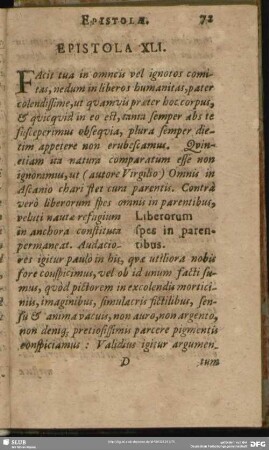 EPISTOLÆ. 72
EPISTOLA XLI.
FAcit tua in omneis vel ignotos comi-
tas, nedum in liberos humanitas, pater
colendissime, ut quamvis præter hoc corpus,
& quicquid in eo est, tanta semper abs te
susceperimus obsequia, plura semper die-
tim appetere non erubescamus. Quin-
etiam ita natura comparatum esse non
ignoramus, ut (autore Virgilio) Omnis in
Ascanio chari stet cura parentis. Contrà
verò liberorum spes omnis in parentibus,
veluti nautæ refugium
in anchora constituta
permaneat. Audacio-
Liberorum
spes in paren-
tibus.
res igitur paulo in his, quæ utiliora nobis
fore conspicimus, vel ob id unum facti su-
mus, quòd pictorem in excolendis mortici-
nis, imaginibus, simulacris fictilibus, sen-
su & anima vacuis, non auro, non argento,
non deniq; pretiosissimis parcere pigmentis
conspiciamus: Validius igitur argumen-
D tum